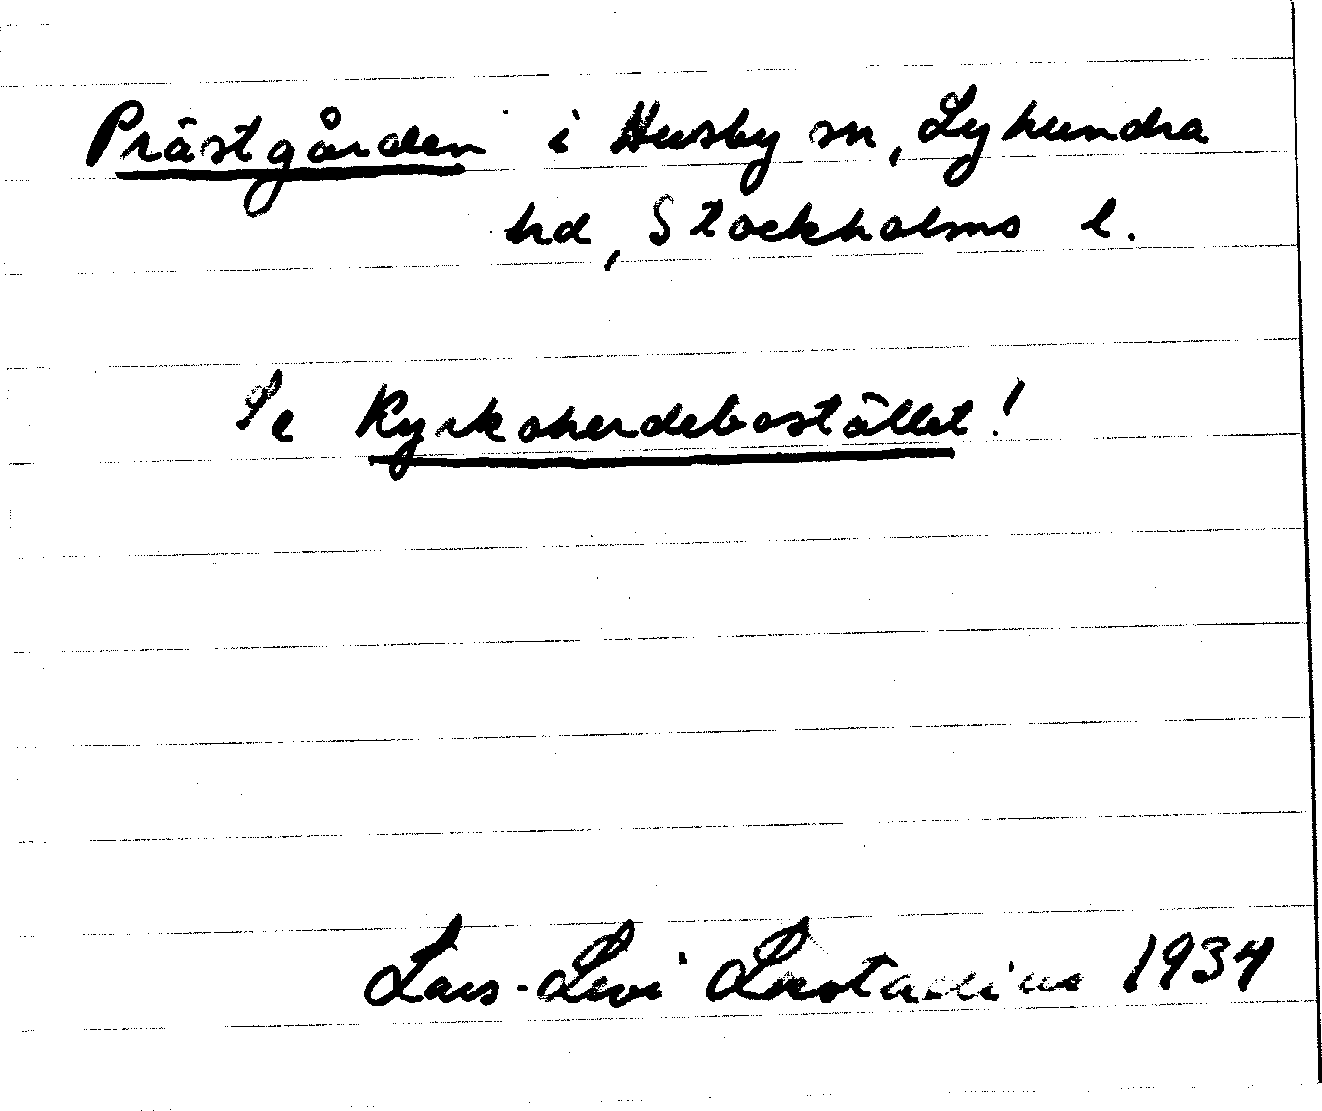 Prästgården i Husby sn, Lyhundra
hd, Stockholms l.
Se Kyrkoherdebostället!
Lars-Levi Læstadius 1934